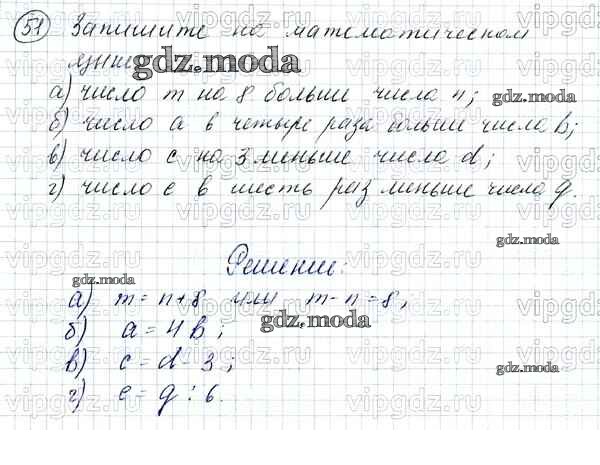 51 Запишите на математическом
языке gdz.moda
а) число m на 8 больше числа n; gdz.moda
б) число a в четыре раза больше числа b;
в) число c на 3 меньше числа d;
г) число e в шесть раз меньше числа g.
gdz.moda
Решение:
gdz.moda
а) m = n + 8 или m - n = 8;
gdz.moda
б) a = 4b;
в) c = d - 3;
gdz.moda
г) e = g : 6.